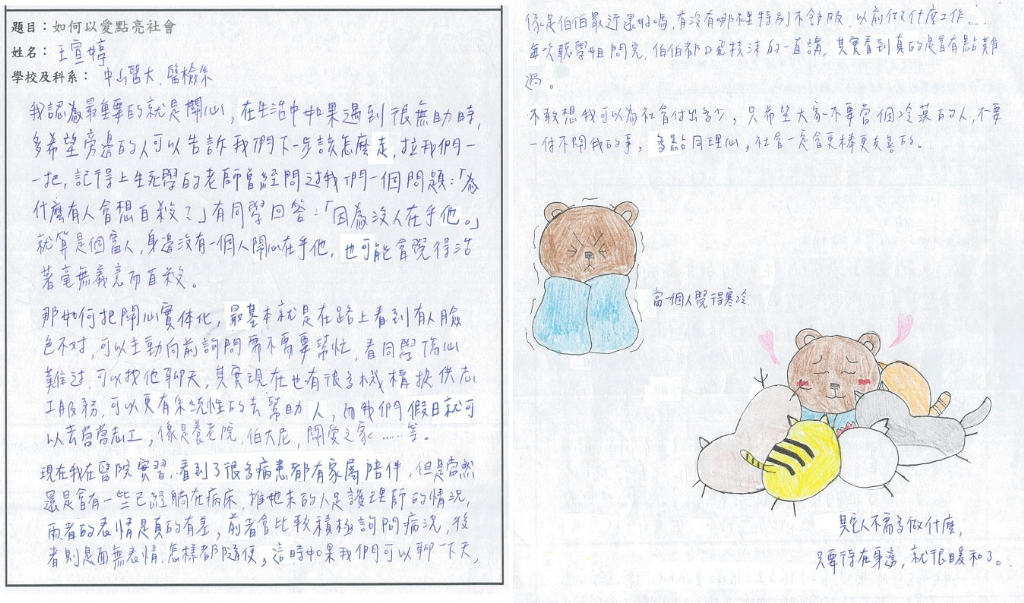 題目：如何以愛點亮社會
姓名： 王宣婷
學校及科系： 中山醫大 醫檢系
我認為最重要的就是關心，在生活中如果遇到很無助時，
多希望旁邊的人可以告訴我們下一步該怎麼走，拉我們一
一把，記得上生死學的老師曾經問過我們一個問題：「為
什麼有人會想自殺？」有同學回答：「因為沒人在乎他。」
就算是個富人，身邊沒有一個人關心在乎他，也可能會覺得活
著毫無義意而自殺。
那如何把關心實体化，最基本就是在路上看到有人臉
色不对，可以主動向前詢問需不需要幫忙，看同學傷心
難过，可以找他聊天，其實現在也有很多机構提供志
工服務，可以更有系統性的去幫助人，而我們假日就可
以去當當志工，像是養老院，伯大尼，關愛之家……等。
現在我在醫院實習，看到了很多病患都有家屬陪伴，但是當然
還是會有一些已經躺在病床，推他來的人是護理師的情況，
兩者的表情是真的有差，前者會比較積極詢問病況，後
者則是面無表情，怎樣都隨便，這時如果我們可以聊一下天，
像是伯伯最近還好嗎，有沒有哪裡特別不舒服，以前做什麼工作…
每次聽學姐問完，伯伯都口飛技沫的一直講，其實看到真的是會有點難
過。
不敢想我可以為社會付出多少，只希望大家不要當個冷莫的人，不要
一付不關我的事，多點同理心，社會一定會更棒更友善的。
當一個人覺得寒冷
其它人不需多做什麼，
只要待在身邊，就很暖和了。